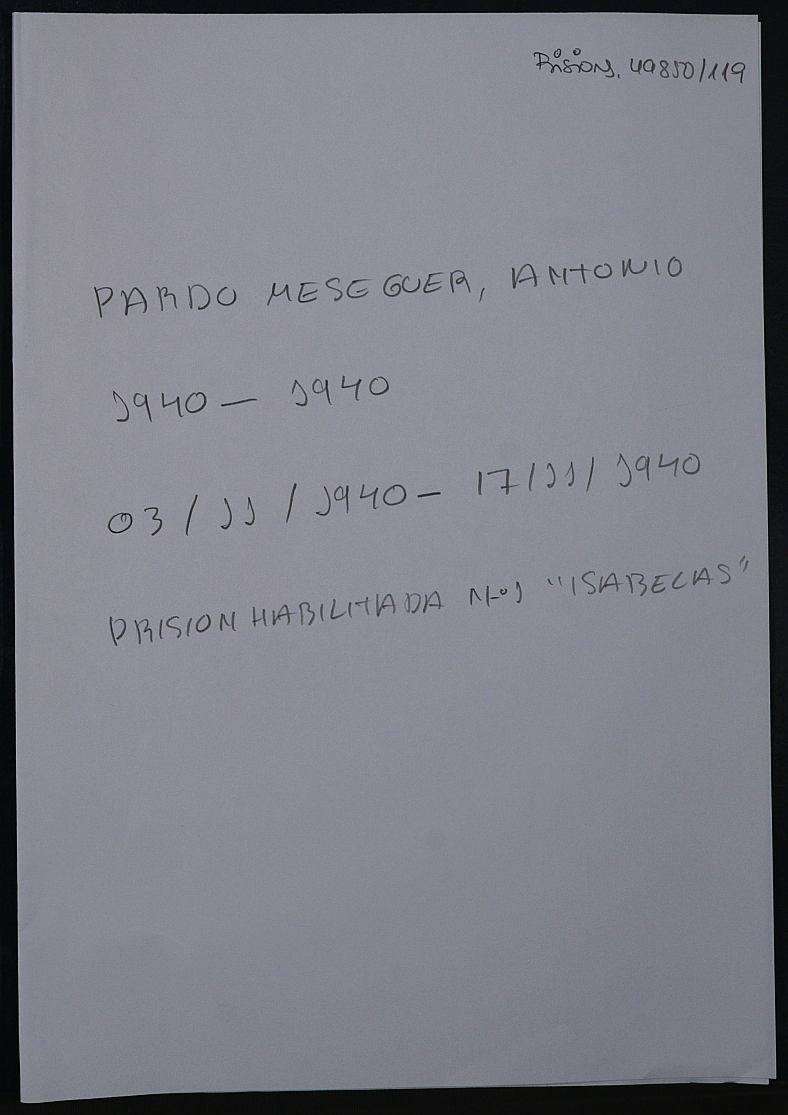 Prisions, 49850/119
PARDO MESEGUER, ANTONIO
1940 — 1940
03 / 11 / 1940 — 17/11/ 1940
PRISION HABILITADA Nº1 "ISABELAS"